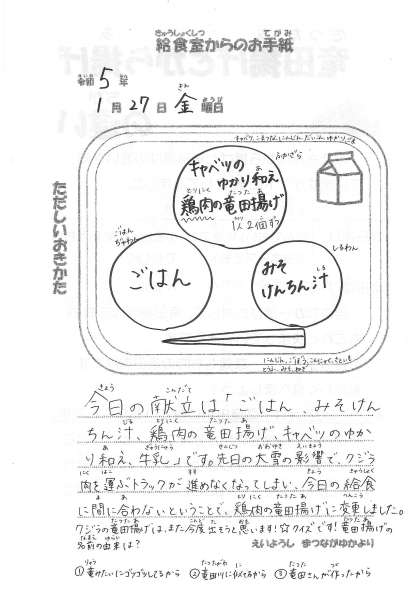 給食室からのお手紙
令和5年
1月27日金曜日
キャベツ、こまつな、にんじん、だいこん、ゆかりこ
ただしいおきかた
キャベツの
ゆかり和え
鶏肉の竜田揚げ
1人2個ずつ
ごはん
ちゃわん
ごはん
しるわん
みそ
けんちん汁
にんじん、ごぼう、こんにゃく、さといも
とうふ、みそ、ねぎ
今日の献立は「ごはん、みそけん
ちん汁、鶏肉の竜田揚げ、キャベツのゆか
り和え、牛乳」です。先日の大雪の影響で、クジラ
肉を運ぶトラックが進めなくなってしまい、今日の給食
に間に合わないということで、鶏肉の竜田揚げに変更しました。
クジラの竜田揚げは、また今度出そうと思います!☆クイズです!竜田揚げの
名前の由来は?
えいようし まつながゆかより
①竜みたいにゴツゴツしてるから ②竜田川に似てるから ③竜田さんが作ったから